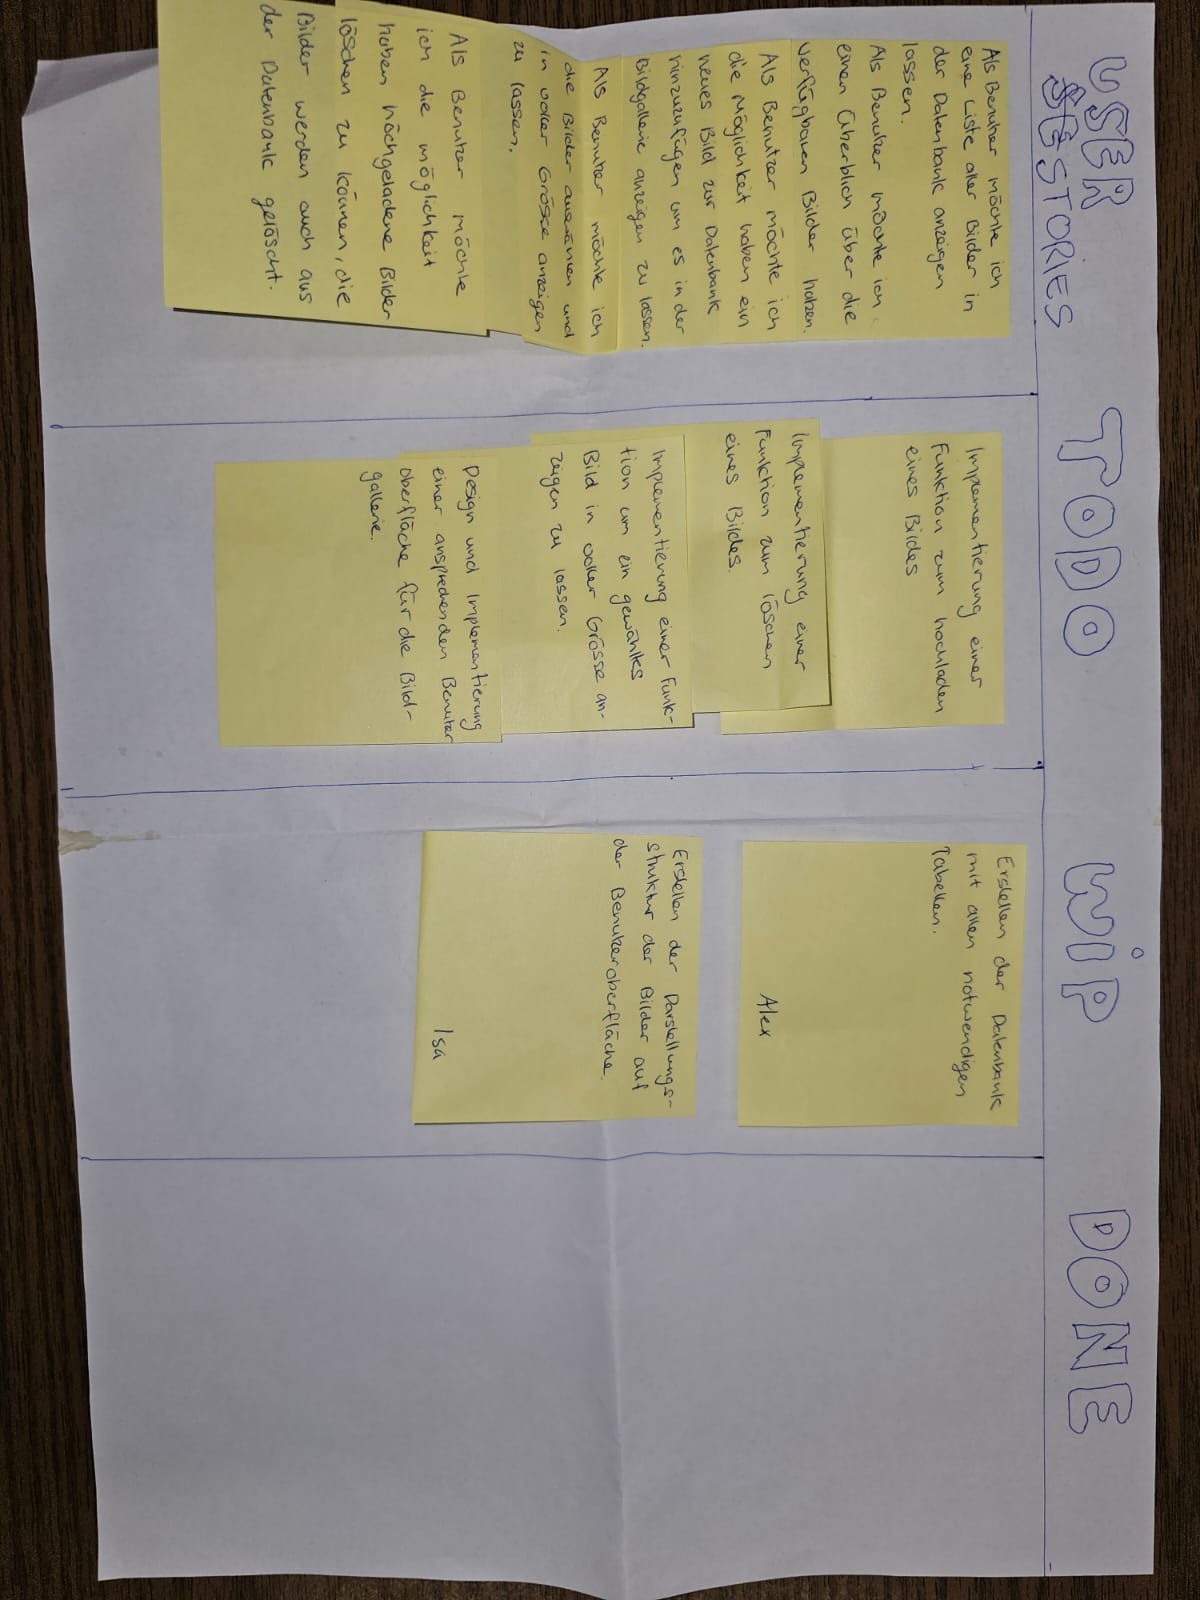 USER
STORIES
Als Benutzer möchte ich
eine Liste aller Bilder in
der Datenbank anzeigen
lassen.
Als Benutzer möchte ich
einen Überblich über die
verfügbaren Bilder haben.
Als Benutzer möchte ich
die Möglichkeit haben ein
neues Bild zur Datenbank
hinzuzufügen um es in der
Bildgallerie anzeigen zu lassen.
Als Benutzer möchte ich
die Bilder auswählen und
in voller Grösse anzeigen
zu lassen.
Als Benutzer möchte
ich die möglichkeit
haben hochgeladene Bilder
löschen zu können, die
Bilder werden auch aus
der Datenbank gelöscht.
TODO
Implementierung einer
Funktion zum hochladen
eines Bildes
Implementierung einer
Funktion zum löschen
eines Bildes.
Implementierung einer Funk-
tion um ein gewähltes
Bild in voller Grösse an-
zeigen zu lassen.
Design und Implementierung
einer ansprechenden Benutzer
oberfläche für die Bild-
gallerie.
WiP
Erstellen der Datenbank
mit allen notwendigen
Tabellen.
Alex
Erstellen der Darstellungs-
struktur der Bilder auf
der Benutzeroberfläche.
Isa
DONE